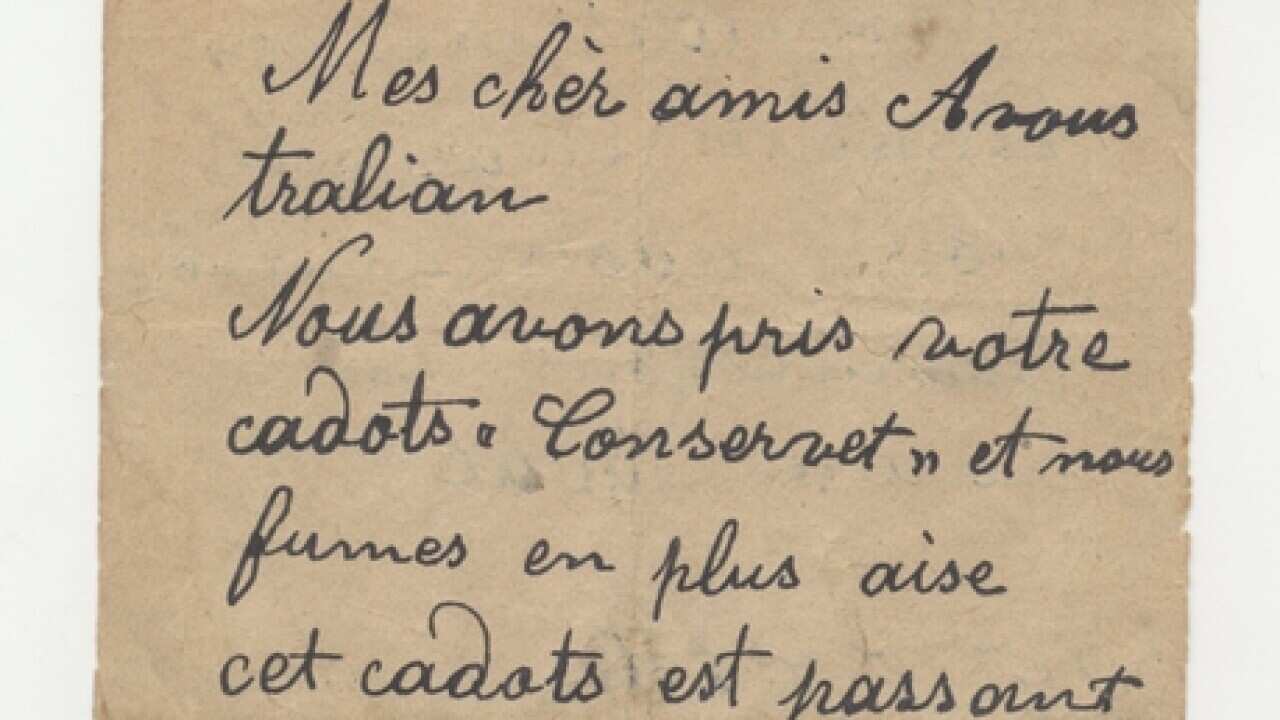 Mes chèr amis Avous
tralian
Nous avons pris votre
cadots " Conservet " et nous
fumes en plus aise
cet cadots est passant